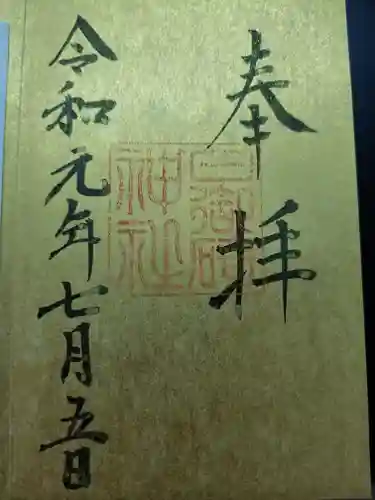 奉拝
令和元年七月五日
神社